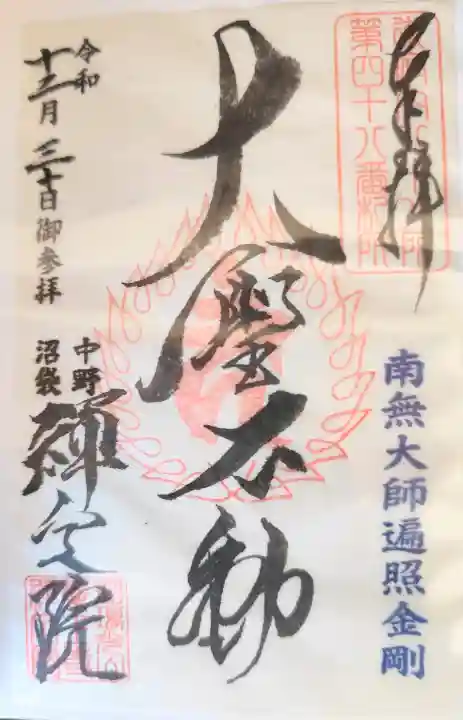 奉拝
御府内八十八ヶ所
第四十八番札所
南無大師遍照金剛
大聖不動
令和
十二月三十日御参拝
中野
沼袋
禅定院